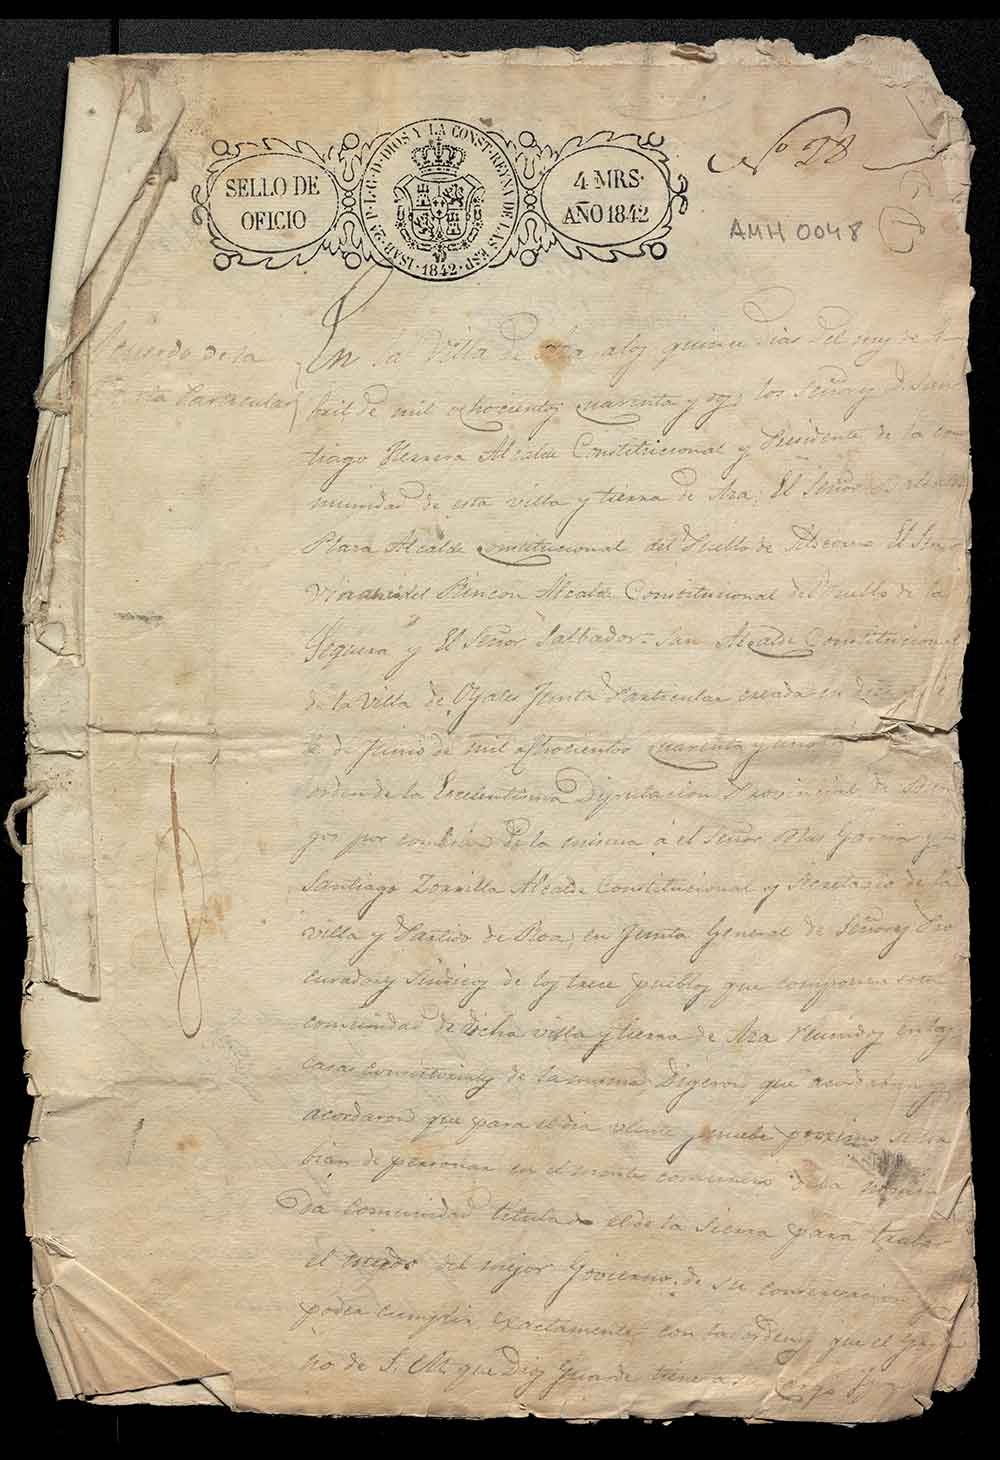 SELLO DE OFICIO
ISAB. 2ª P. L. G. D. DIOS Y LA CONST. REYNA DE LAS ESP. 1842
4 MRS. AÑO 1842
Nº 28
AMH 0048
Acuerdo de la
Particular
En la Villa de Aza a los quince dias del mes de A
bril de mil ochocientos quarenta y dos los Señores D. San
tiago Herrera Alcalde Constitucional y Presidente de la co
munidad de esta villa y tierra de Aza: El Señor
Plaza Alcalde Constitucional del Pueblo de El Señor
del Rincon Alcalde Constitucional del Pueblo de la
Sequera y El Señor Salbador San Alcalde Constitucional
de la Villa de Oyales Junta Particular creada en
de Junio de mil ochocientos quarenta y uno
orden de la Excelentisima Diputacion Provincial de Bur
gos por de la misma á el Señor Blas Garcia y
Santiago Zorrilla Alcalde Constitucional y Secretario de la
villa y Partido de Roa, en Junta General de Señores Pro
curadores Sindicos de los trece pueblos que componen esta
comunidad de dicha villa y tierra de Aza reunidos en las
casas consistoriales de la misma Digeron que acordaban y
acordaron que para el dia veinte y nuebe proximo se ha
bian de personar en el monte comunero de la
da comunidad titulado el de la Sierra para tratar
el del mejor Govierno, de su conservacion y
poder cumplir exactamente con las ordenes que el Govier
no de S. M. que Dios Guarde tiene